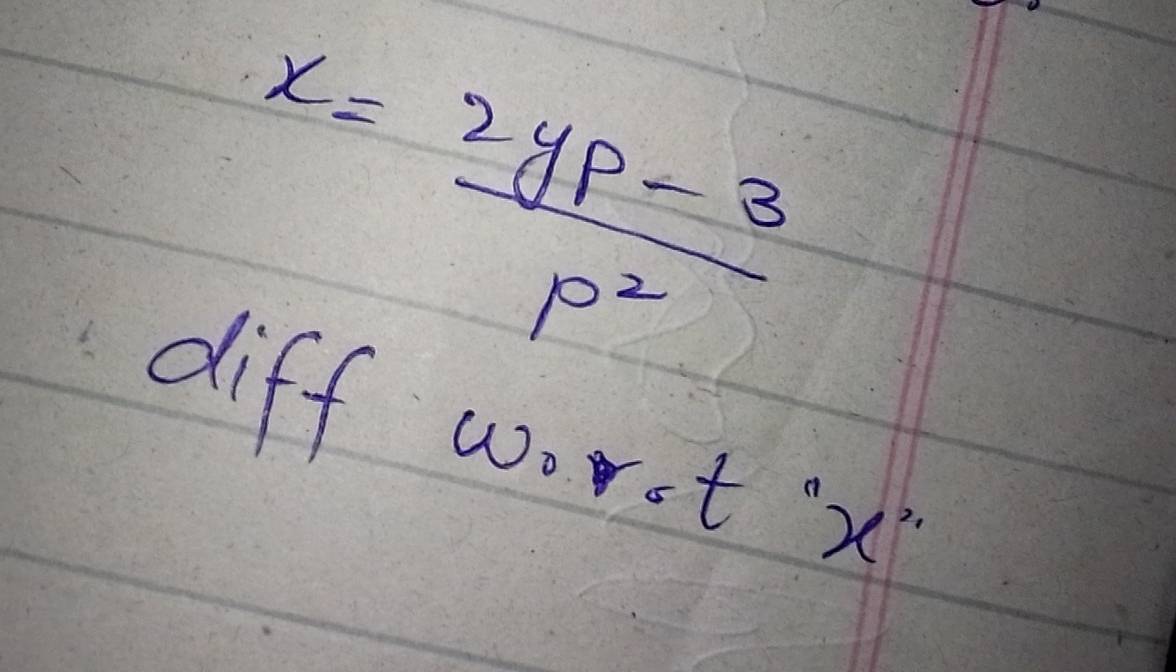 x = 2yp - 3
p2
diff w.r.t "x"